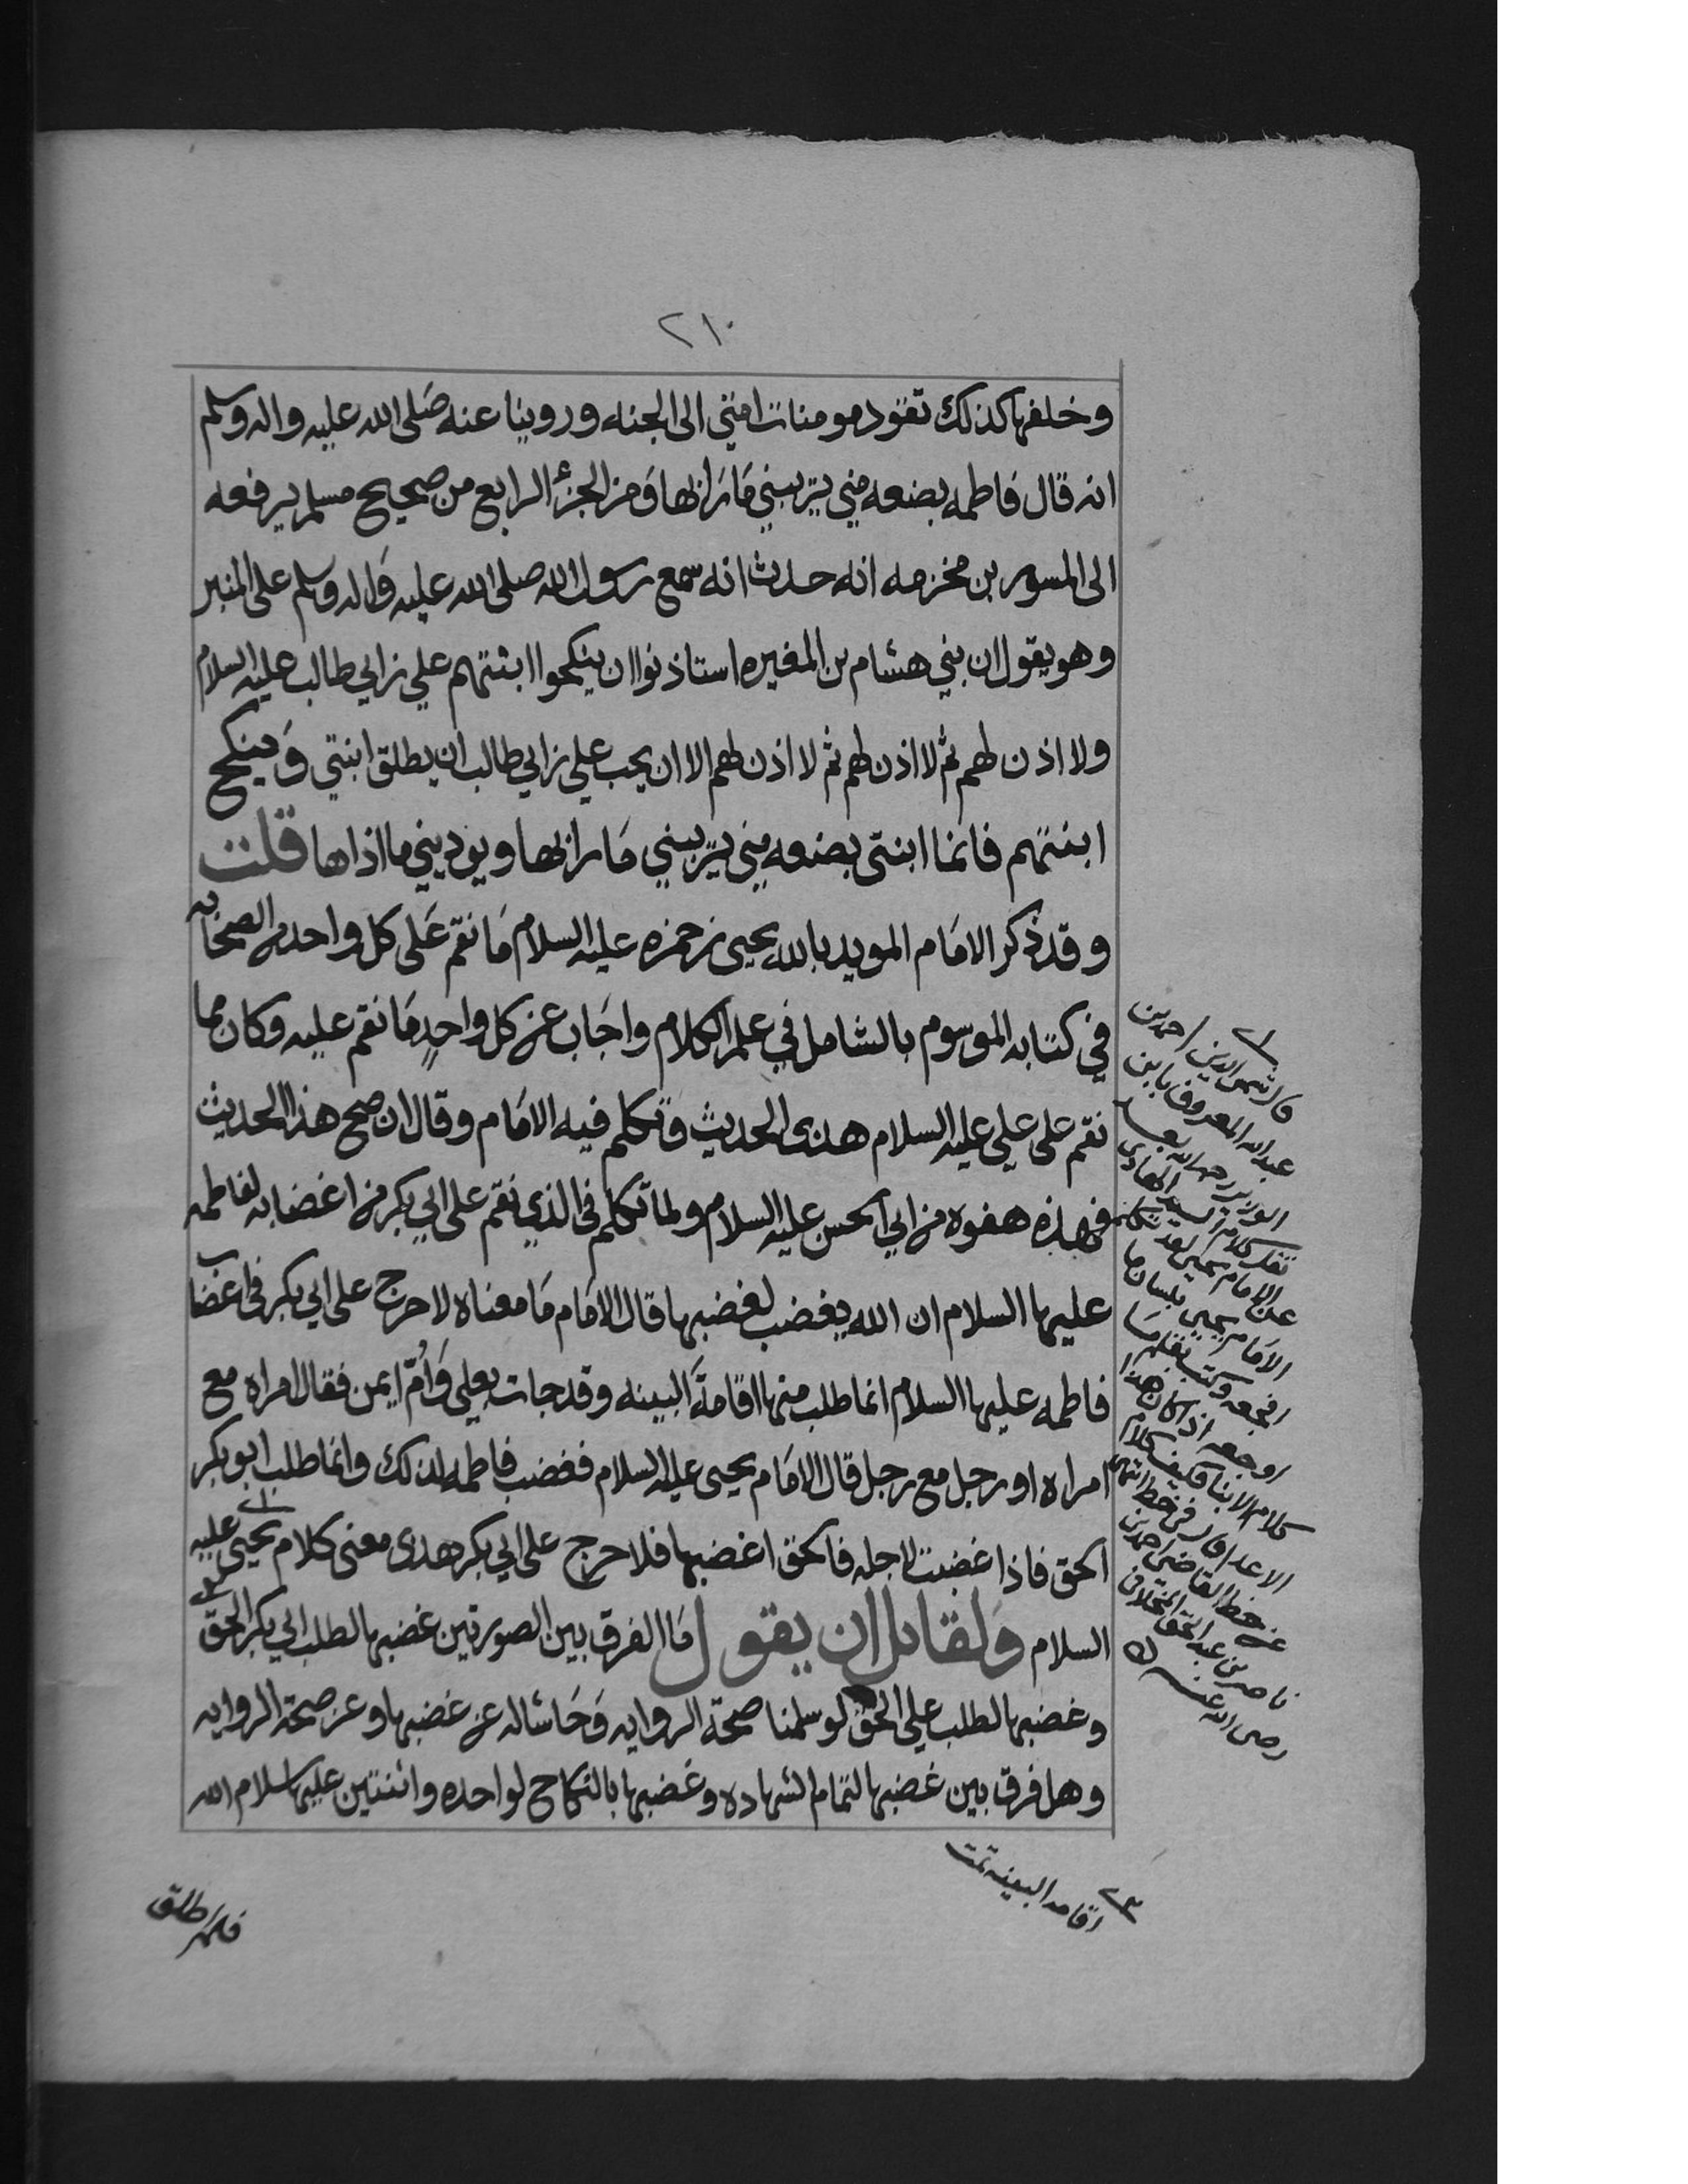 ٢١٠
وخلفها كذلك تقود مومنات امتي الى الجنه وروينا عنه صلى الله عليه واله وسلم
انه قال فاطمه بضعه مني يريبني ما رابها ومن الجزء الرابع من صحيح مسلم يرفعه
الى المسور بن مخرمه انه حدث انه سمع رسول الله صلى الله عليه واله وسلم على المنبر
وهو يقول ان بني هشام بن المغيره استاذنوا ان ينكحوا ابنتهم علي بن ابي طالب عليه السلام
ولا اذن لهم ثم لا اذن لهم ثم لا اذن لهم الا ان يحب علي بن ابي طالب ان يطلق ابنتي وينكح
ابنتهم فانما ابنتي بضعه مني يريبني ما رابها ويوذيني ما اذاها قلت
وقد ذكر الامام المويد بالله يحيى بن حمزه عليه السلام ما نقم على كل واحد من الصحابه
في كتابه الموسوم بالشامل في علم الكلام واجاب عن كل واحدٍ ما نقم عليه وكان مما
نقم على علي عليه السلام هذى الحديث وتكلم فيه الامام وقال ان صح هذا الحديث
فهذه هفوه من ابي الحسن عليه السلام ولما تكلم في الذي نقم على ابي بكر من اغضابه لفاطمه
عليها السلام ان الله يغضب لغضبها قال الامام ما معناه لا حرج على ابي بكر في اغضاب
فاطمه عليها السلام انما طلب منها اقامةَ البينه وقد جات بعلي وَاُمّ ايمن فقال امراه مع
امراه او رجل مع رجل قال الامام يحيى عليه السلام فغضب فاطمه لذلك وانما طلب ابو بكر
الحق فاذا غضبت لاجله فالحق اغضبها فلا حرج على ابي بكر هذى معنى كلام يحيى عليه
السلام ولقايل ان يقول ما الفرق بين الصورتين غضبها لطلب ابي بكر الحق
وغضبها لطلب علي الحق لو سلمنا صحة الروايه وَحَاشا له عن غضبها وعن صحة الروايه
وهل فرق بين غضبها لتمام الشهاده وغضبها بالنكاح لواحده واثنتين عليها سلام الله
فلم اطلق
قال شمس الدين احمد بن
عبد الله المعروف بابن
الوزير رحمه الله
نقل كلام السيد الهادي
عن الامام يحيى لقد تكلم
الامام يحيى بلسان ما
افجعه وكتب بقلم ما
اوجعه اذا كان هذا
كلام الابنا فكيف كلام
الاعدا قال في خط انتهى
من خط القاضي احمد بن
ناصر بن عبد الحق المخلافي
رضي الله عنه
٣
اقامه البينه تمت